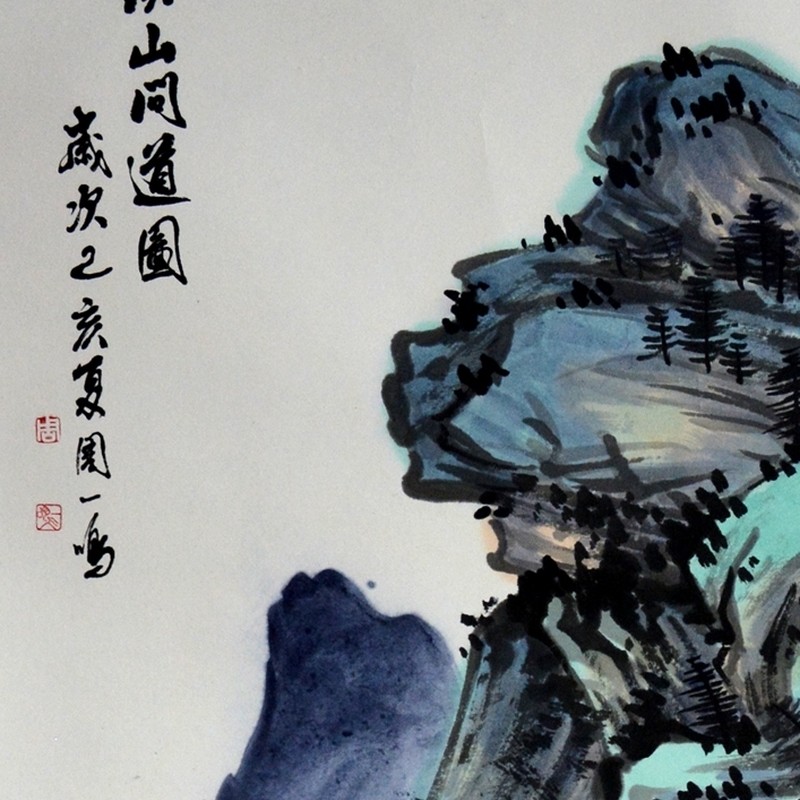 山問道圖
歲次乙亥夏周一鳴